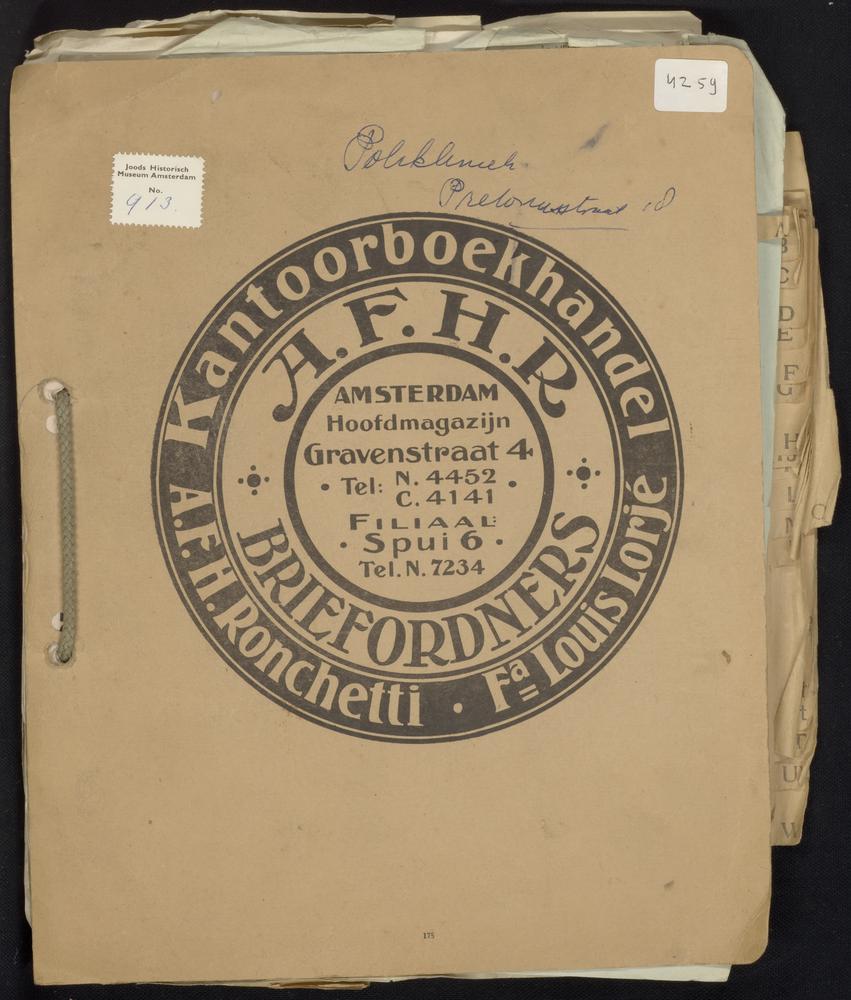 42 59
Joods Historisch
Museum Amsterdam
No.
913.
Polikliniek
Pretoriusstraat
Kantoorboekhandel
A.F.H.R
AMSTERDAM
Hoofdmagazijn
Gravenstraat 4
• Tel: N. 4452 •
C. 4141
FILIAAL:
• Spui 6 •
Tel. N. 7234
BRIEFORDNERS
A.F.H. Ronchetti • Fa Louis Lorjé
A
B
C
D
E
F
G
H
L
C
U
W
175